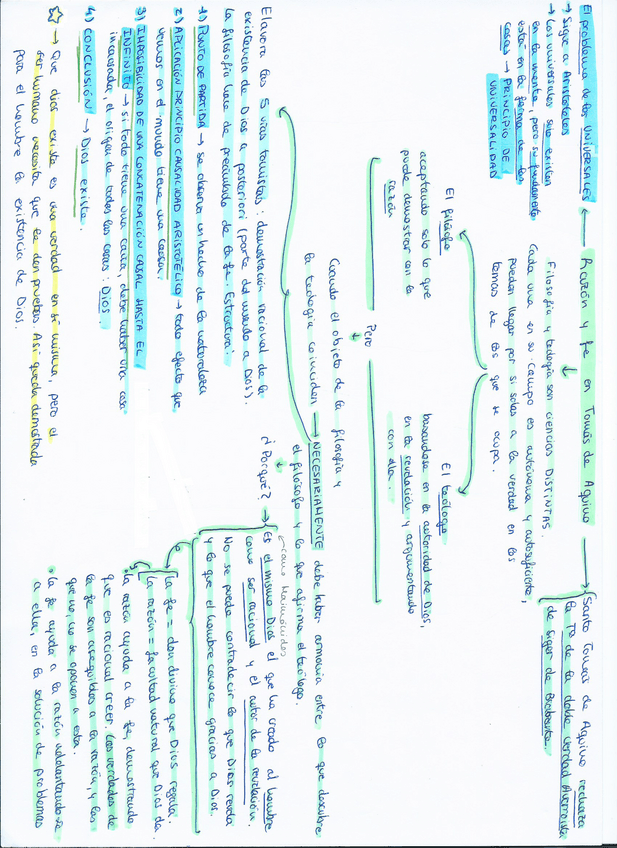 Razón y fe en Tomás de Aquino
Santo Tomás de Aquino rechaza
la Tª de la doble verdad averroísta
de Siger de Brabante.
El problema de los UNIVERSALES
→ Sigue a Aristóteles
→ Los universales solo existen
en la mente, pero su fundamento
está en la forma de las
cosas → PRINCIPIO DE
UNIVERSALIDAD
Filosofía y teología son ciencias DISTINTAS.
Cada una en su campo es autónoma y autosuficiente,
pueden llegar por si solas a la verdad en los
temas de los que se ocupa.
El filósofo
aceptando solo lo que
puede demostrar con la
razón
El teólogo
basandose en la autoridad de Dios,
en la revelación y argumentando
con ella.
Pero
Cuando el objeto de la filosofía y
la teología coinciden → NECESARIAMENTE debe haber armonía entre lo que descubre
el filósofo y lo que afirma el teólogo.
¿Porqué? → Es el mismo Dios el que ha creado al hombre
como Maimónides
como ser racional y el autor de la revelación.
No se puede contradecir lo que Dios revela
y lo que el hombre conoce gracias a Dios.
La fe = don divino que Dios regala.
La razón = facultad natural que Dios da.
• La razón ayuda a la fe, demostrando
que es racional creer. Las verdades de
la fe son asequibles a la razón, y las
que no, no se oponen a esta.
• La fe ayuda a la razón
a ella, en la solución de problemas
Elavora las 5 vías tomistas: demostración racional de la
existencia de Dios a posteriori (parte del mundo a Dios).
La filosofía hace de preámbulo de la fe. Estructura:
1) PUNTO DE PARTIDA → se observa un hecho de la naturaleza
2) APLICACIÓN PRINCIPIO CAUSALIDAD ARISTOTÉLICO → todo efecto que
vemos en el mundo tiene una causa.
3) IMPOSIBILIDAD DE UNA CONCATENACIÓN CASAL HASTA EL
INFINITO → si todo tiene una causa, debe haber una casa
incausada, el origen de todas las cosas: Dios.
4) CONCLUSIÓN → Dios existe.
→ Que dios existe es una verdad en sí misma, pero el
ser humano necesita que le den pruebas. Así queda demostrada
para el hombre la existencia de Dios.